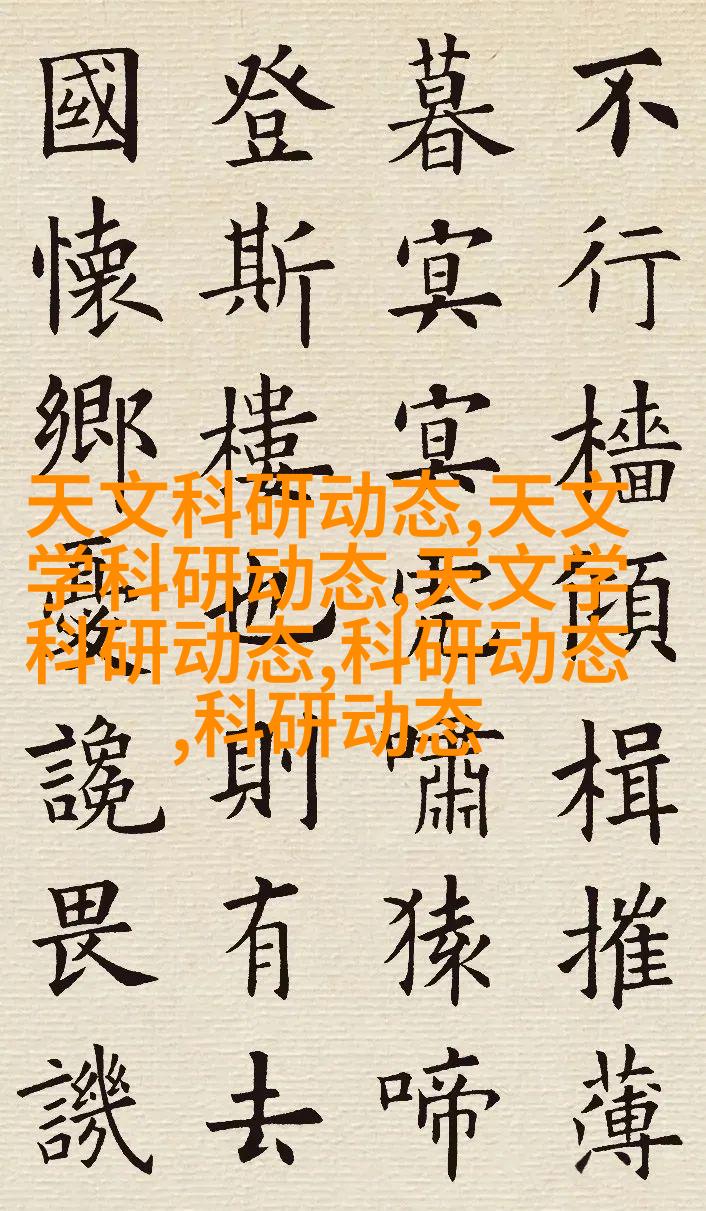 不行檣傾楫摧薄
暮冥冥虎嘯猿啼
登斯樓也則有去
國懷鄉憂讒畏譏
天文科研动态,天文
学科研动态,天文学
科研动态,科研动态
,科研动态